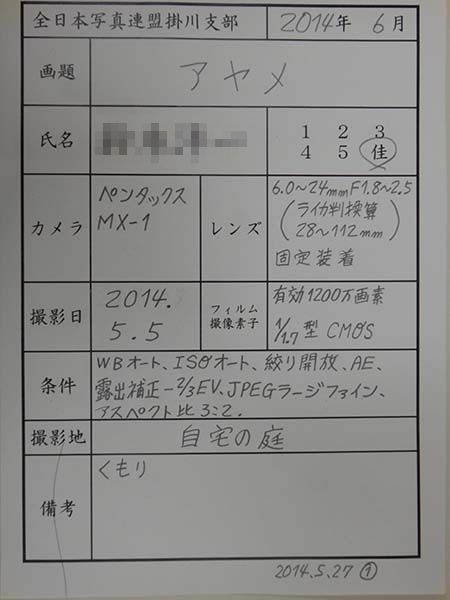 全日本写真連盟掛川支部 2014年 6月
画題 アヤメ
氏名 1 2 3
4 5 佳
カメラ ペンタックス
MX-1
レンズ 6.0~24mm F1.8~2.5
(ライカ判換算
28~112mm)
固定装着
撮影日 2014.
5.5
フィルム
撮像素子
有効1200万画素
1/1.7型 CMOS
条件 WBオート、ISOオート、絞り開放、AE、
露出補正-2/3EV、JPEGラージファイン、
アスペクト比3:2.
撮影地 自宅の庭
備考 くもり
2014.5.27 ①